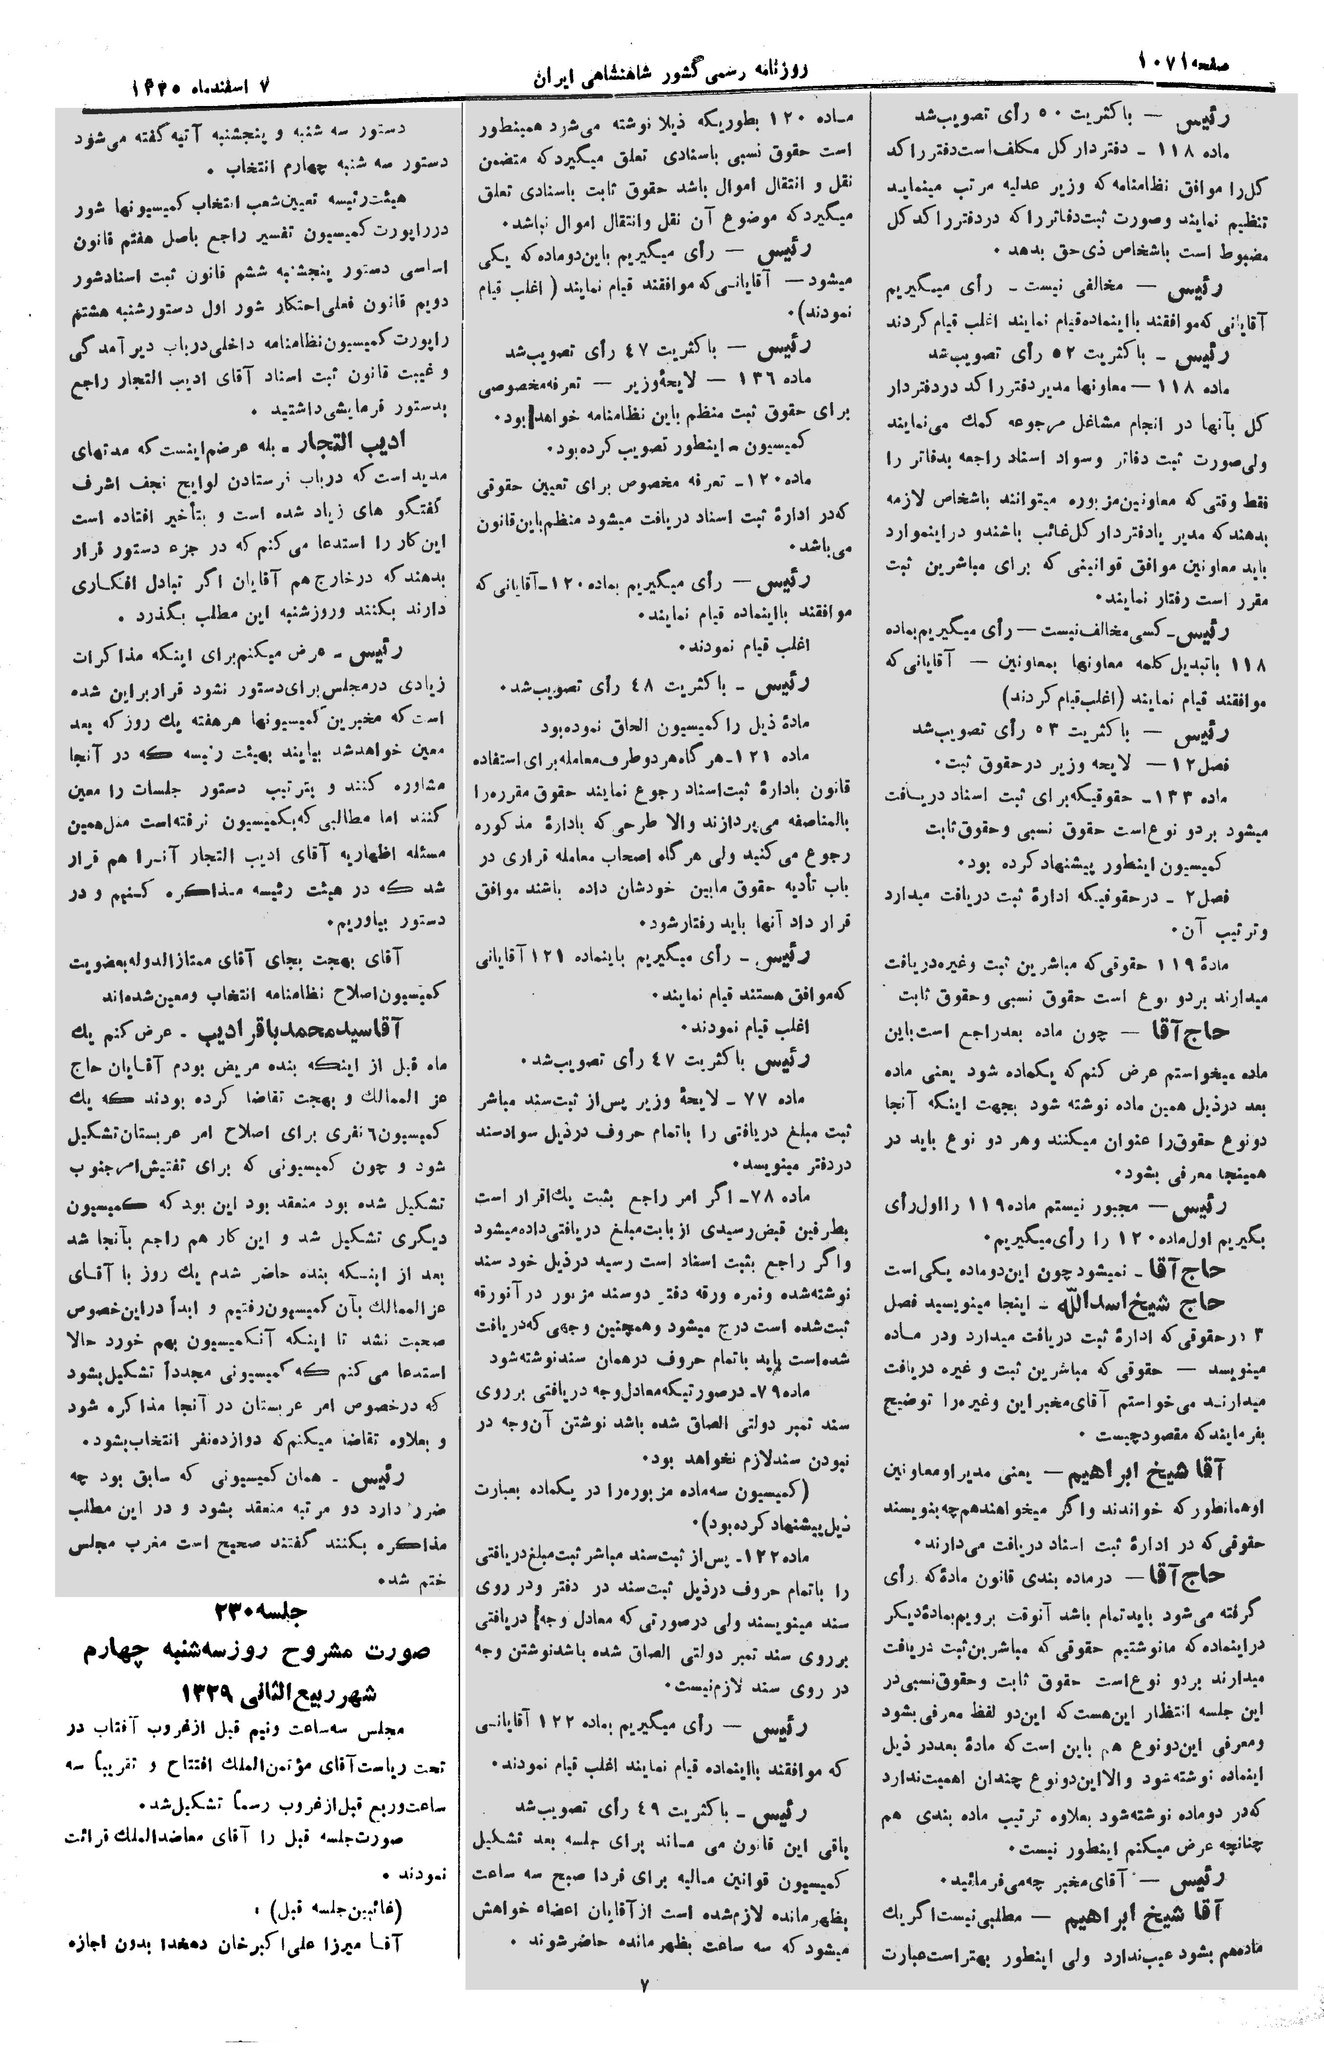 صفحه ۱۰۷۱
روزنامه رسمی کشور شاهنشاهی ایران
۷ اسفندماه ۱۳۳۵
رئیس — باکثریت ۵۰ رأی تصویب شد
ماده ۱۱۸ ـ دفتردار کل مکلف است دفتر را کد
کل را موافق نظامنامه که وزیر عدلیه مرتب مینماید
تنظیم نمایند و صورت ثبت دفاتر را که در دفتر را کد کل
مضبوط است باشخاص ذی حق بدهد ۰
رئیس — مخالفی نیست ـ رأی میگیریم
آقایانی که موافقند بااینماده قیام نمایند اغلب قیام کردند
رئیس ـ باکثریت ۵۲ رأی تصویب شد
ماده ۱۱۸ — معاونها مدیر دفتر را کد در دفتردار
کل بآنها در انجام مشاغل مرجوعه کمك می نمایند
ولی صورت ثبت دفاتر وسواد اسناد راجعه بدفاتر را
فقط وقتی که معاونین مزبوره میتوانند باشخاص لازمه
بدهند که مدیر یا دفتردار کل غائب باشند و در اینموارد
باید معاونین موافق قوانینی که برای مباشرین ثبت
مقرر است رفتار نمایند۰
رئیس ـ کسی مخالف نیست — رأی میگیریم بماده
۱۱۸ باتبدیل کلمه معاونها بمعاونین — آقایانی که
موافقند قیام نمایند (اغلب قیام کردند)
رئیس — باکثریت ۵۳ رأی تصویب شد
فصل ۱۲ — لایحه وزیر در حقوق ثبت ۰
ماده ۱۳۳ ـ حقوقیکه برای ثبت اسناد دریافت
میشود بر دو نوع است حقوق نسبی و حقوق ثابت
کمیسیون اینطور پیشنهاد کرده بود۰
فصل ۲ ـ در حقوقیکه ادارۀ ثبت دریافت میدارد
و ترتیب آن ۰
مادۀ ۱۱۹ حقوقی که مباشرین ثبت و غیره دریافت
میدارند بر دو نوع است حقوق نسبی و حقوق ثابت
حاج آقا — چون ماده بعد راجع است باین
ماده میخواستم عرض کنم که یکماده شود یعنی ماده
بعد در ذیل همین ماده نوشته شود بجهت اینکه آنجا
دو نوع حقوق را عنوان میکنند و هر دو نوع باید در
همینجا معرفی بشود۰
رئیس — مجبور نیستم ماده ۱۱۹ را اول رأی
بگیریم اول ماده ۱۲۰ را رأی میگیریم۰
حاج آقا ـ نمیشود چون این دو ماده یکی است
حاج شیخ اسدالله ـ اینجا مینویسید فصل
۳ در حقوقی که ادارۀ ثبت دریافت میدارد و در ماده
مینویسد — حقوقی که مباشرین ثبت و غیره دریافت
میدارند می خواستم آقای مخبر این و غیره را توضیح
بفرمایند که مقصود چیست ۰
آقا شیخ ابراهیم — یعنی مدیر او معاونین
او همانطور که خواندند و اگر میخواهند هم چه بنویسند
حقوقی که در ادارۀ ثبت اسناد دریافت می دارند۰
حاج آقا — در ماده بندی قانون مادۀ که رأی
گرفته می شود باید تمام باشد آنوقت برویم بمادۀ دیگر
در اینماده که ما نوشتیم حقوقی که مباشرین ثبت دریافت
میدارند بر دو نوع است حقوق ثابت و حقوق نسبی در
این جلسه انتظار این هست که این دو لفظ معرفی بشود
و معرفی این دو نوع هم باین است که مادۀ بعد در ذیل
اینماده نوشته شود والا این دو نوع چندان اهمیت ندارد
که در دو ماده نوشته شود بعلاوه ترتیب ماده بندی هم
چنانچه عرض میکنم اینطور نیست ۰
رئیس — آقای مخبر چه می فرمائید۰
آقا شیخ ابراهیم — مطلبی نیست اگر یك
ماده هم بشود عیب ندارد ولی اینطور بهتر است عبارت
ماده ۱۲۰ بطوریکه ذیلا نوشته می شود همینطور
است حقوق نسبی باسنادی تعلق میگیرد که متضمن
نقل و انتقال اموال باشد حقوق ثابت باسنادی تعلق
میگیرد که موضوع آن نقل و انتقال اموال نباشد۰
رئیس — رأی میگیریم باین دو ماده که یکی
میشود — آقایانی که موافقند قیام نمایند (اغلب قیام
نمودند)۰
رئیس — باکثریت ۴۷ رأی تصویب شد
ماده ۱۳۶ — لایحۀ وزیر — تعرفه مخصوصی
برای حقوق ثبت منظم باین نظامنامه خواهد بود۰
کمیسیون ـ اینطور تصویب کرده بود۰
ماده ۱۲۰ ـ تعرفه مخصوص برای تعیین حقوقی
که در ادارۀ ثبت اسناد دریافت میشود منظم باین قانون
می باشد۰
رئیس — رأی میگیریم بماده ۱۲۰ ـ آقایانی که
موافقند بااینماده قیام نمایند۰
اغلب قیام نمودند۰
رئیس ـ باکثریت ۴۸ رأی تصویب شد۰
مادۀ ذیل را کمیسیون الحاق نموده بود
ماده ۱۲۱ ـ هر گاه هر دو طرف معامله برای استفاده
قانون بادارۀ ثبت اسناد رجوع نمایند حقوق مقرره را
بالمناصفه می پردازند والا طرحی که بادارۀ مذکوره
رجوع می کنید ولی هر گاه اصحاب معامله قراری در
باب تأدیه حقوق مابین خودشان داده باشند موافق
قرار داد آنها باید رفتار شود۰
رئیس ـ رأی میگیریم باینماده ۱۲۱ آقایانی
که موافق هستند قیام نمایند۰
اغلب قیام نمودند۰
رئیس باکثریت ۴۷ رأی تصویب شد۰
ماده ۷۷ ـ لایحۀ وزیر پس از ثبت سند مباشر
ثبت مبلغ دریافتی را باتمام حروف در ذیل سواد سند
در دفتر مینویسد۰
ماده ۷۸ ـ اگر امر راجع بثبت یك اقرار است
بطرفین قبض رسیدی از بابت مبلغ دریافتی داده میشود
و اگر راجع بثبت اسناد است رسید در ذیل خود سند
نوشته شده و نمره ورقه دفتر دو سند مزبور در آنورقه
ثبت شده است درج میشود و همچنین وجهی که دریافت
شده است باید باتمام حروف در همان سند نوشته شود
ماده ۷۹ ـ در صورتیکه معادل وجه دریافتی بر روی
سند تمبر دولتی الصاق شده باشد نوشتن آن وجه در
نبودن سند لازم نخواهد بود۰
(کمیسیون سه ماده مزبوره را در یکماده بعبارت
ذیل پیشنهاد کرده بود)۰
ماده ۱۲۲ ـ پس از ثبت سند مباشر ثبت مبلغ دریافتی
را باتمام حروف در ذیل ثبت سند در دفتر و در روی
سند مینویسند ولی در صورتی که معادل وجه دریافتی
بر روی سند تمبر دولتی الصاق شده باشد نوشتن وجه
در روی سند لازم نیست ۰
رئیس — رأی میگیریم بماده ۱۲۲ آقایانی
که موافقند بااینماده قیام نمایند اغلب قیام نمودند۰
رئیس ـ باکثریت ۴۹ رأی تصویب شد
باقی این قانون می ماند برای جلسه بعد تشکیل
کمیسیون قوانین مالیه برای فردا صبح سه ساعت
بظهر مانده لازم شده است از آقایان اعضاء خواهش
میشود که سه ساعت بظهر مانده حاضر شوند ۰
دستور سه شنبه و پنجشنبه آتیه گفته می شود
دستور سه شنبه چهارم انتخاب ۰
هیئت رئیسه تعیین شعب انتخاب کمیسیونها شور
در راپورت کمیسیون تفسیر راجع باصل هفتم قانون
اساسی دستور پنجشنبه ششم قانون ثبت اسناد شور
دویم قانون فعلی احتکار شور اول دستور شنبه هشتم
راپورت کمیسیون نظامنامه داخلی در باب دیر آمدگی
و غیبت قانون ثبت اسناد آقای ادیب التجار راجع
بدستور فرمایشی داشتید ۰
ادیب التجار ـ بله عرضم اینست که مدتهای
مدید است که در باب فرستادن لوایح نجف اشرف
گفتگو های زیاد شده است و بتأخیر افتاده است
این کار را استدعا می کنم که در جزء دستور قرار
بدهند که در خارج هم آقایان اگر تبادل افکاری
دارند بکنند و روز شنبه این مطلب بگذرد ۰
رئیس ـ عرض میکنم برای اینکه مذاکرات
زیادی در مجلس برای دستور نشود قرار بر این شده
است که مخبرین کمیسیونها هر هفته یك روز که بعد
معین خواهد شد بیایند بهیئت رئیسه که در آنجا
مشاوره کنند و بترتیب دستور جلسات را معین
کنند اما مطالبی که بکمیسیون نرفته است مثل همین
مسئله اظهاریه آقای ادیب التجار آنرا هم قرار
شد که در هیئت رئیسه مذاکره کنیم و در
دستور بیاوریم۰
آقای بهجت بجای آقای ممتازالدوله بعضویت
کمیسیون اصلاح نظامنامه انتخاب و معین شده اند
آقا سید محمد باقر ادیب ـ عرض کنم یك
ماه قبل از اینکه بنده مریض بودم آقایان حاج
عز الممالك و بهجت تقاضا کرده بودند که یك
کمیسیون ۶ نفری برای اصلاح امر عربستان تشکیل
شود و چون کمیسیونی که برای تفتیش امر جنوب
تشکیل شده بود منعقد بود این بود که کمیسیون
دیگری تشکیل شد و این کار هم راجع بآنجا شد
بعد از اینکه بنده حاضر شدم یك روز با آقای
عز الممالك بآن کمیسیون رفتیم و ابداً در این خصوص
صحبت نشد تا اینکه آنکمیسیون بهم خورد حالا
استدعا می کنم که کمیسیونی مجدداً تشکیل بشود
که در خصوص امر عربستان در آنجا مذاکره شود
و بعلاوه تقاضا میکنم که دوازده نفر انتخاب بشود۰
رئیس ـ همان کمیسیونی که سابق بود چه
ضرر دارد دو مرتبه منعقد بشود و در این مطلب
مذاکره بکنند گفتند صحیح است مغرب مجلس
ختم شد۰
جلسه ۲۳۰
صورت مشروح روز سه شنبه چهارم
شهر ربیع الثانی ۱۳۲۹
مجلس سه ساعت و نیم قبل از غروب آفتاب در
تحت ریاست آقای مؤتمن الملك افتتاح و تقریباً سه
ساعت و ربع قبل از غروب رسماً تشکیل شد۰
صورت جلسه قبل را آقای معاضد الملك قرائت
نمودند ۰
(غائبین جلسه قبل) ۰
آقا میرزا علی اکبر خان دهخدا بدون اجازه
۷